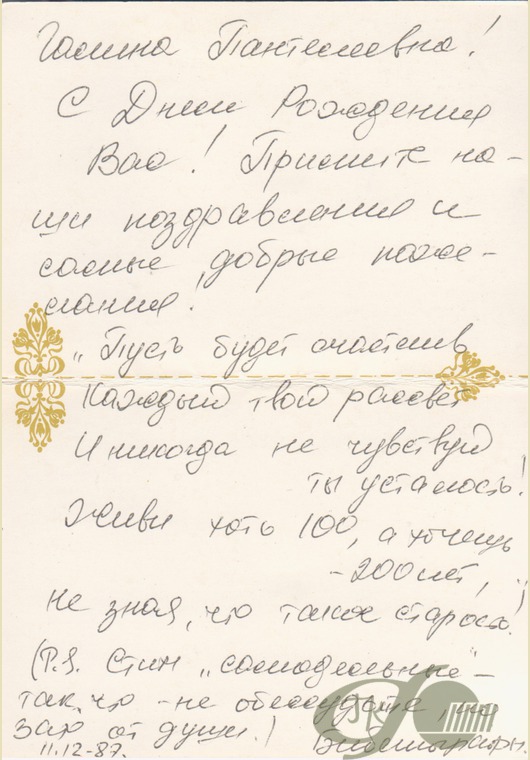 Галина Пантелеевна!
С Днем Рождения
Вас! Примите на-
ши поздравления и
самые добрые поже-
лания.
"Пусть будет счастлив
Каждый твой рассвет
И никогда не чувствуй
ты усталость!
Живи хоть 100, а хочешь
- 200 лет,
не зная, что такое старость!"
(P.S. Стихи "самодельные" -
так что - не обессудьте, но
зато от души.)
11.12-87.